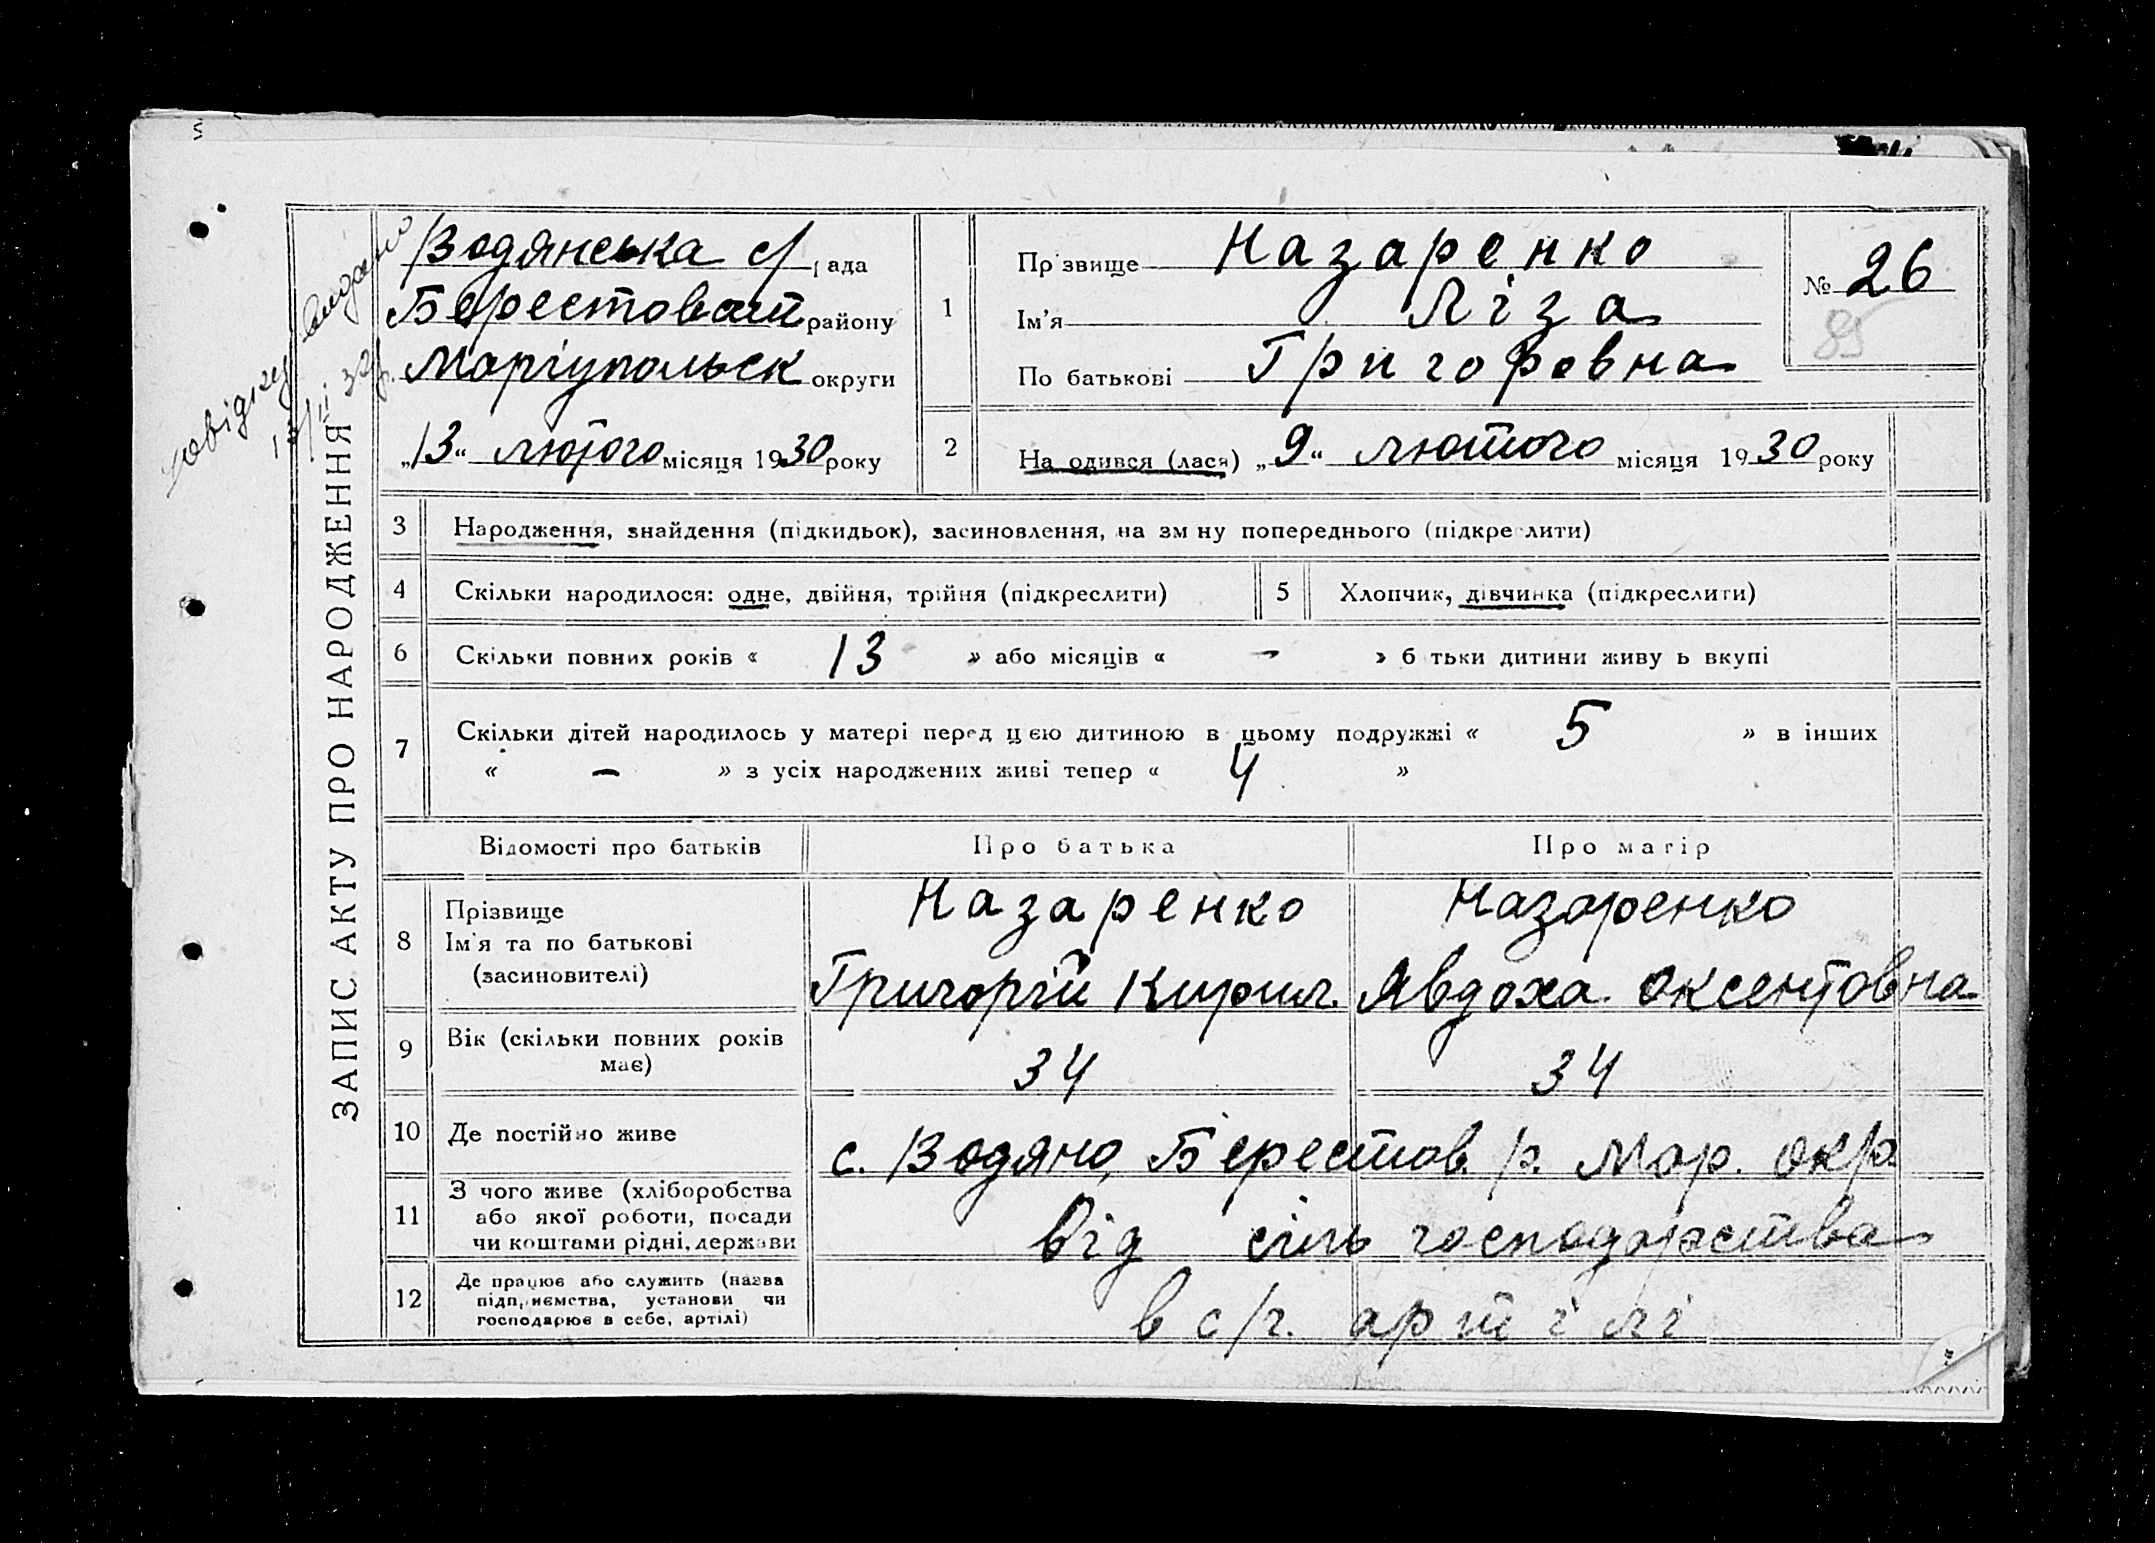 ЗАПИС АКТУ ПРО НАРОДЖЕННЯ
довідку видано
Водянська с/рада
Берестоваты району
Маріупольск округи
„13“ лютого місяця 1930 року
1
Прізвище Назаренко
Ім'я Ліза
По батькові Григоровна
№ 26
85
2
На одився (лася) „9“ лютого місяця 1930 року
3 Народження, знайдення (підкидьок), засиновлення, на зм ну попереднього (підкреслити)
4 Скільки народилося: одне, двійня, трійня (підкреслити)
5 Хлопчик, дівчинка (підкреслити)
6 Скільки повних років « 13 » або місяців « – » б тьки дитини живу ь вкупі
7 Скільки дітей народилось у матері перед цією дитиною в цьому подружжі « 5 » в інших
« – » з усіх народжених живі тепер « 4 »
Відомості про батьків Про батька Про матір
8 Прізвище
Ім'я та по батькові
(засиновителі)
Назаренко
Григорій Кирил.
Назаренко
Явдоха Оксентовна
9 Вік (скільки повних років
має)
34 34
10 Де постійно живе
с. Водяно, Берестов. р. Мар. окр.
11 З чого живе (хліборобства
або якої роботи, посади
чи коштами рідні, держави
від сіль господарства
12 Де працює або служить (назва
підприємства, установи чи
господарює в себе, артілі)
в с/г. артілі